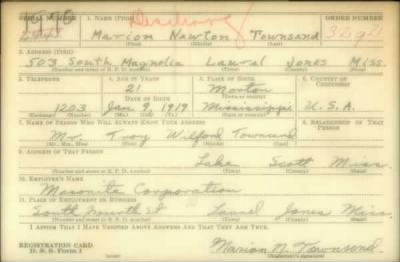 SERIAL NUMBER 1. NAME (Print) ORDER NUMBER
Marion Newton Townsand
(First) (Middle) (Last)
2. ADDRESS (Print)
503 South Magnolia Laural Jones Miss.
3. TELEPHONE 4. AGE IN YEARS 5. PLACE OF BIRTH 6. COUNTRY OF CITIZENSHIP
21 Morton
DATE OF BIRTH
1203 Jan 9, 1919 Mississippi U.S.A.
7. NAME OF PERSON WHO WILL ALWAYS KNOW YOUR ADDRESS 8. RELATIONSHIP OF THAT PERSON
Mr. Troy Wilford Townsend
(Mr., Mrs., Miss) (First) (Middle) (Last)
9. ADDRESS OF THAT PERSON
Lake Scott Miss
10. EMPLOYER'S NAME
Masonite Corporation
11. PLACE OF EMPLOYMENT OR BUSINESS
South Fourth St Laurel Jones Miss
I AFFIRM THAT I HAVE VERIFIED ABOVE ANSWERS AND THAT THEY ARE TRUE.
REGISTRATION CARD
D. S. S. Form 1
Marion N. Townsend
(Registrant's signature)